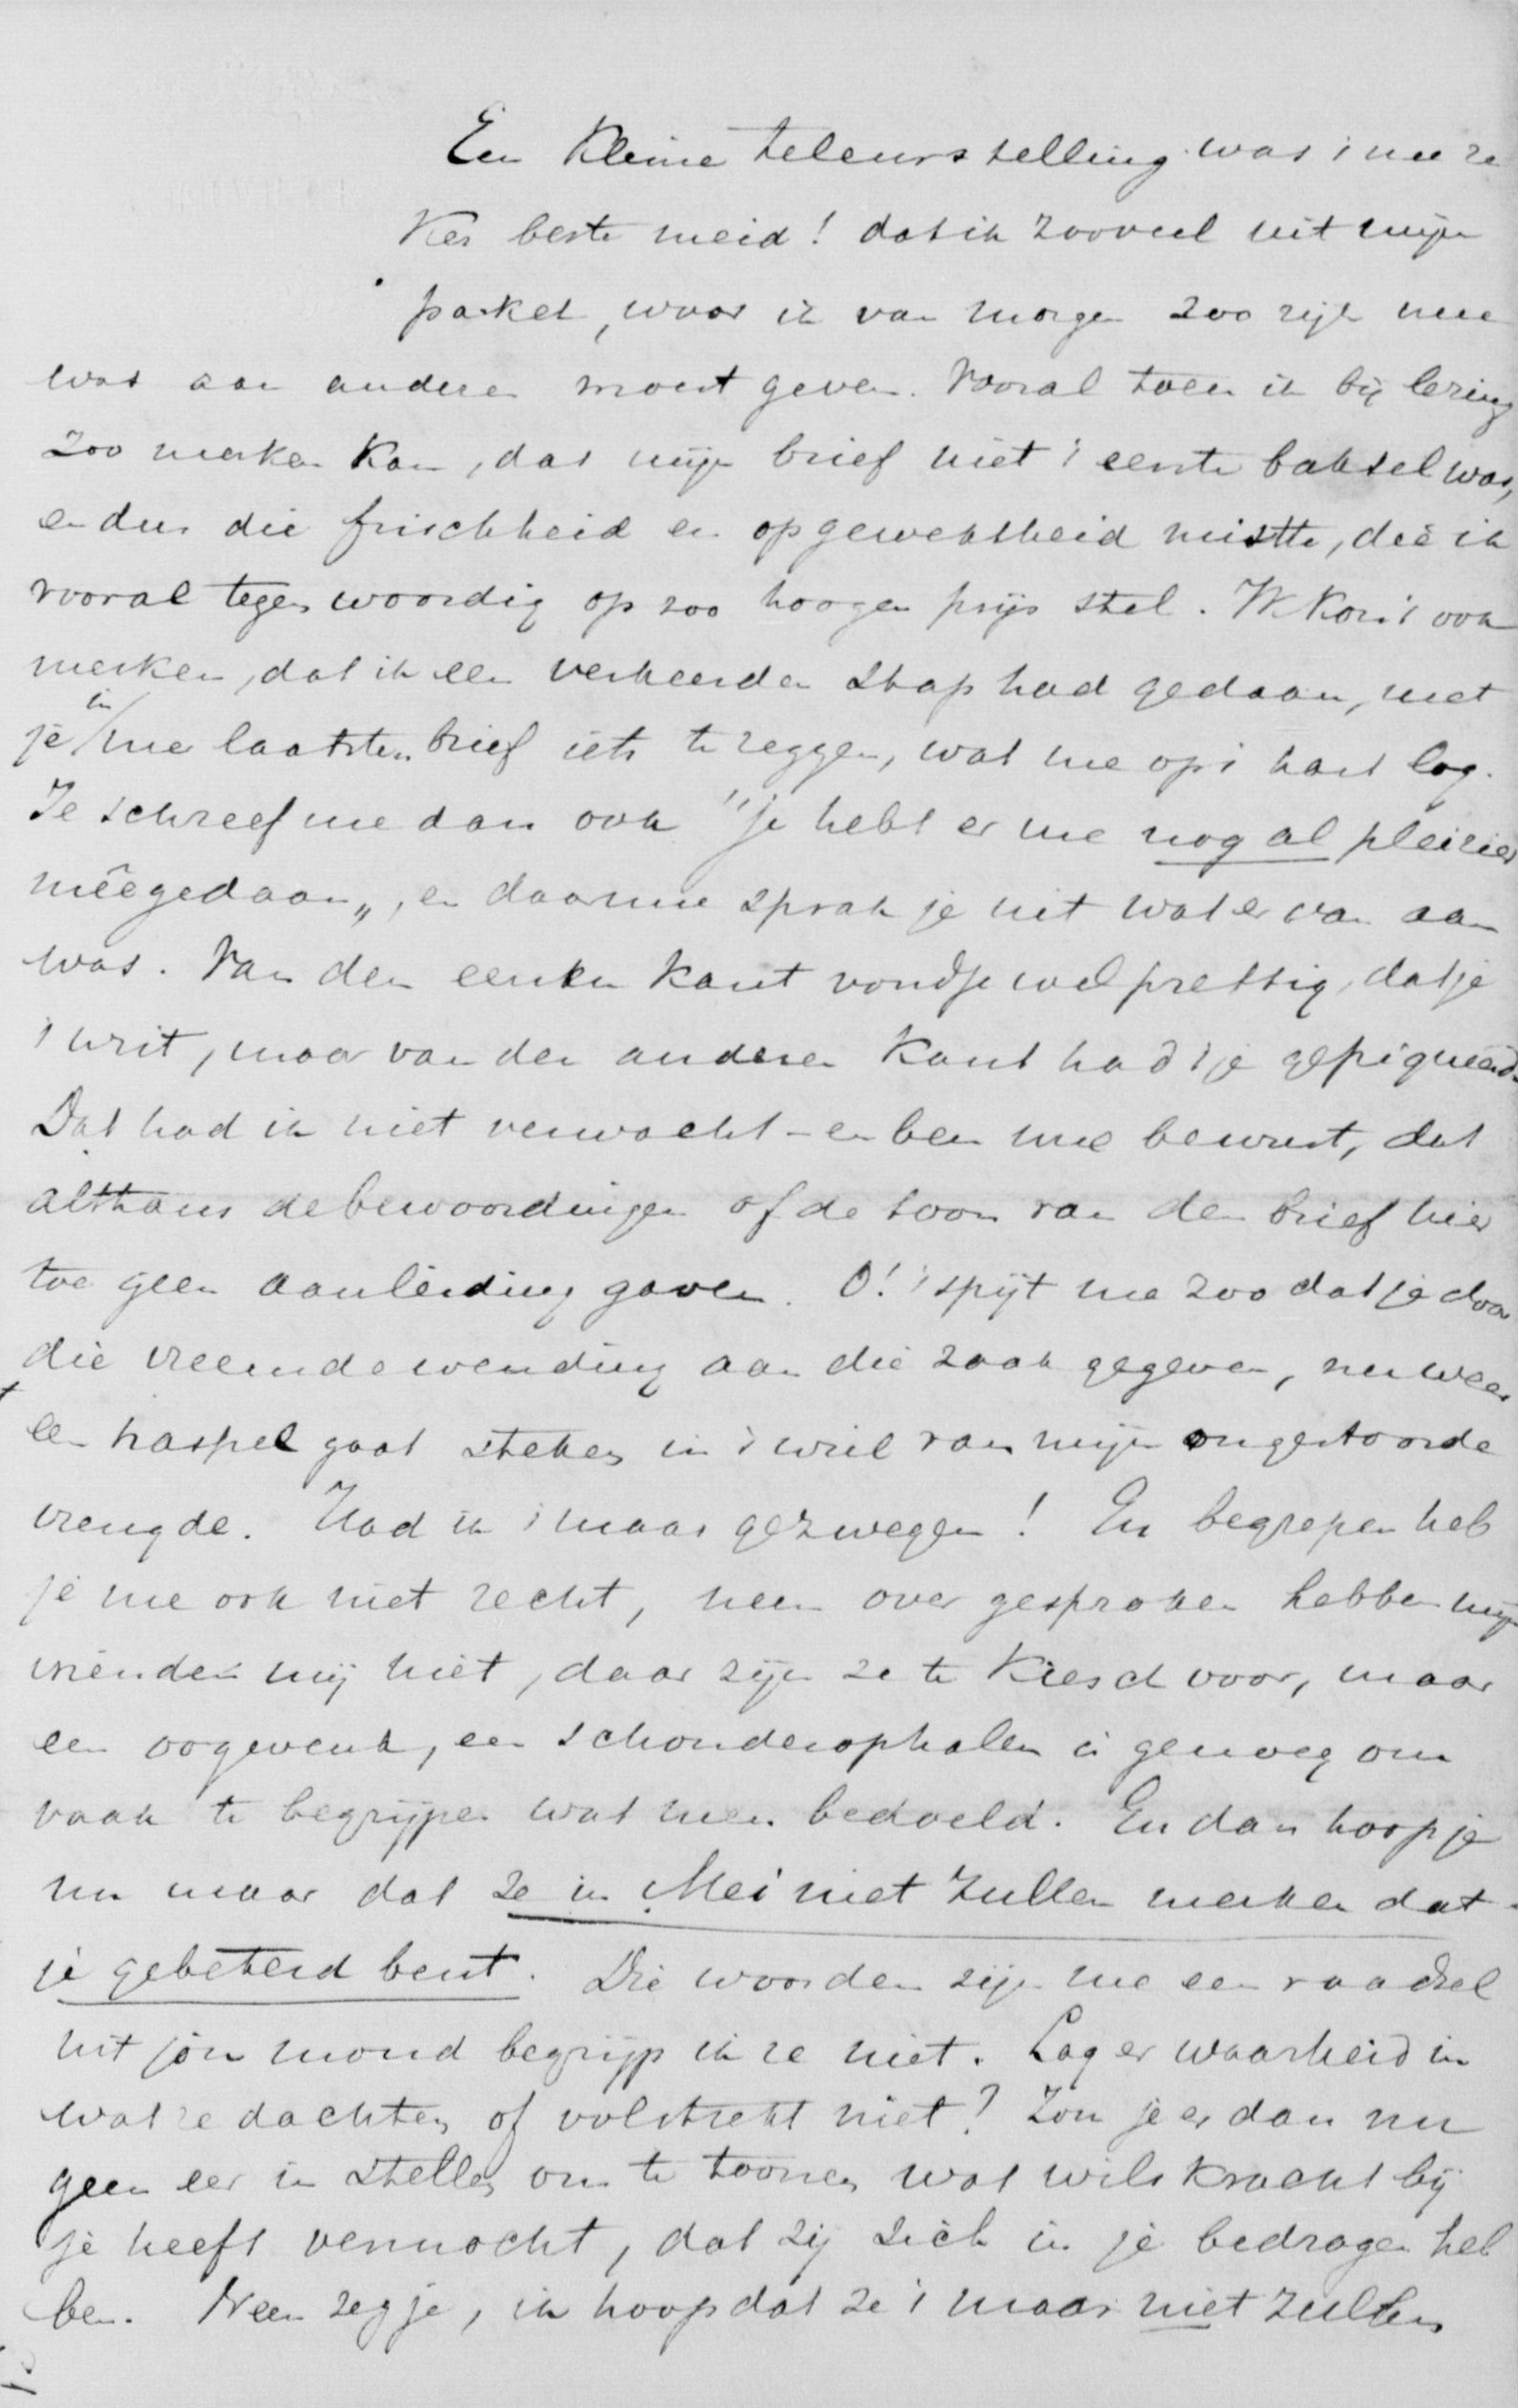 Een kleine teleurstelling was 't me ze
ker beste meid! dat ik zooveel uit mijn
pakket, waar ik van morgen zoo rijk mee
was aan anderen moest geven. Vooral toen ik bij lezing
zoo merken kon, dat mijn brief niet 't eerste baksel was,
en dus die frischheid en opgewektheid mistte, die ik
vooral tegenwoordig op zoo hoogen prijs stel. Ik kon 't ook
merken, dat ik een verkeerden stap had gedaan, met
je in me laatsten brief iets te zeggen, wat me op 't hart lag.
Je schreef me dan ook "je hebt er me nog al pleizier
mêegedaan", en daarmee sprak je uit wat er van aan
was. Van den eenen kant vondje wel prettig, dat je
't wist, maar van den anderen kant had 't je gepiqueerd.
Dat had ik niet verwacht - en ben me bewust, dat
althans de bewoordingen of de toon van den brief hier
toe geen aanleiding gaven. O! 't spijt me zoo dat je door
die vreemde wending aan die zaak gegeven, nu weer
een haspel gaat steken in 't wiel van mijn ongestoorde
vreugde. Had ik 't maar gezwegen! En begrepen heb
je me ook niet recht, neen over gesproken hebben mijn
vrienden mij niet, daar zijn ze te kiesch voor, maar
een oogewenk, een schouderophalen is genoeg om
vaak te begrijpen wat men bedoeld. En dan hoop je
nu maar dat ze in Mei niet zullen merken dat
je gebeterd bent. Die woorden zijn me een raadsel
uit jou mond begrijp ik ze niet. Lag er waarheid in
wat ze dachten of volstrekt niet? Zou je er dan nu
geen eer in stellen om te toonen wat wilskracht bij
je heeft vermocht, dat zij zich in je bedrogen heb
ben. Neen zeg je, ik hoop dat ze 't maar niet zullen